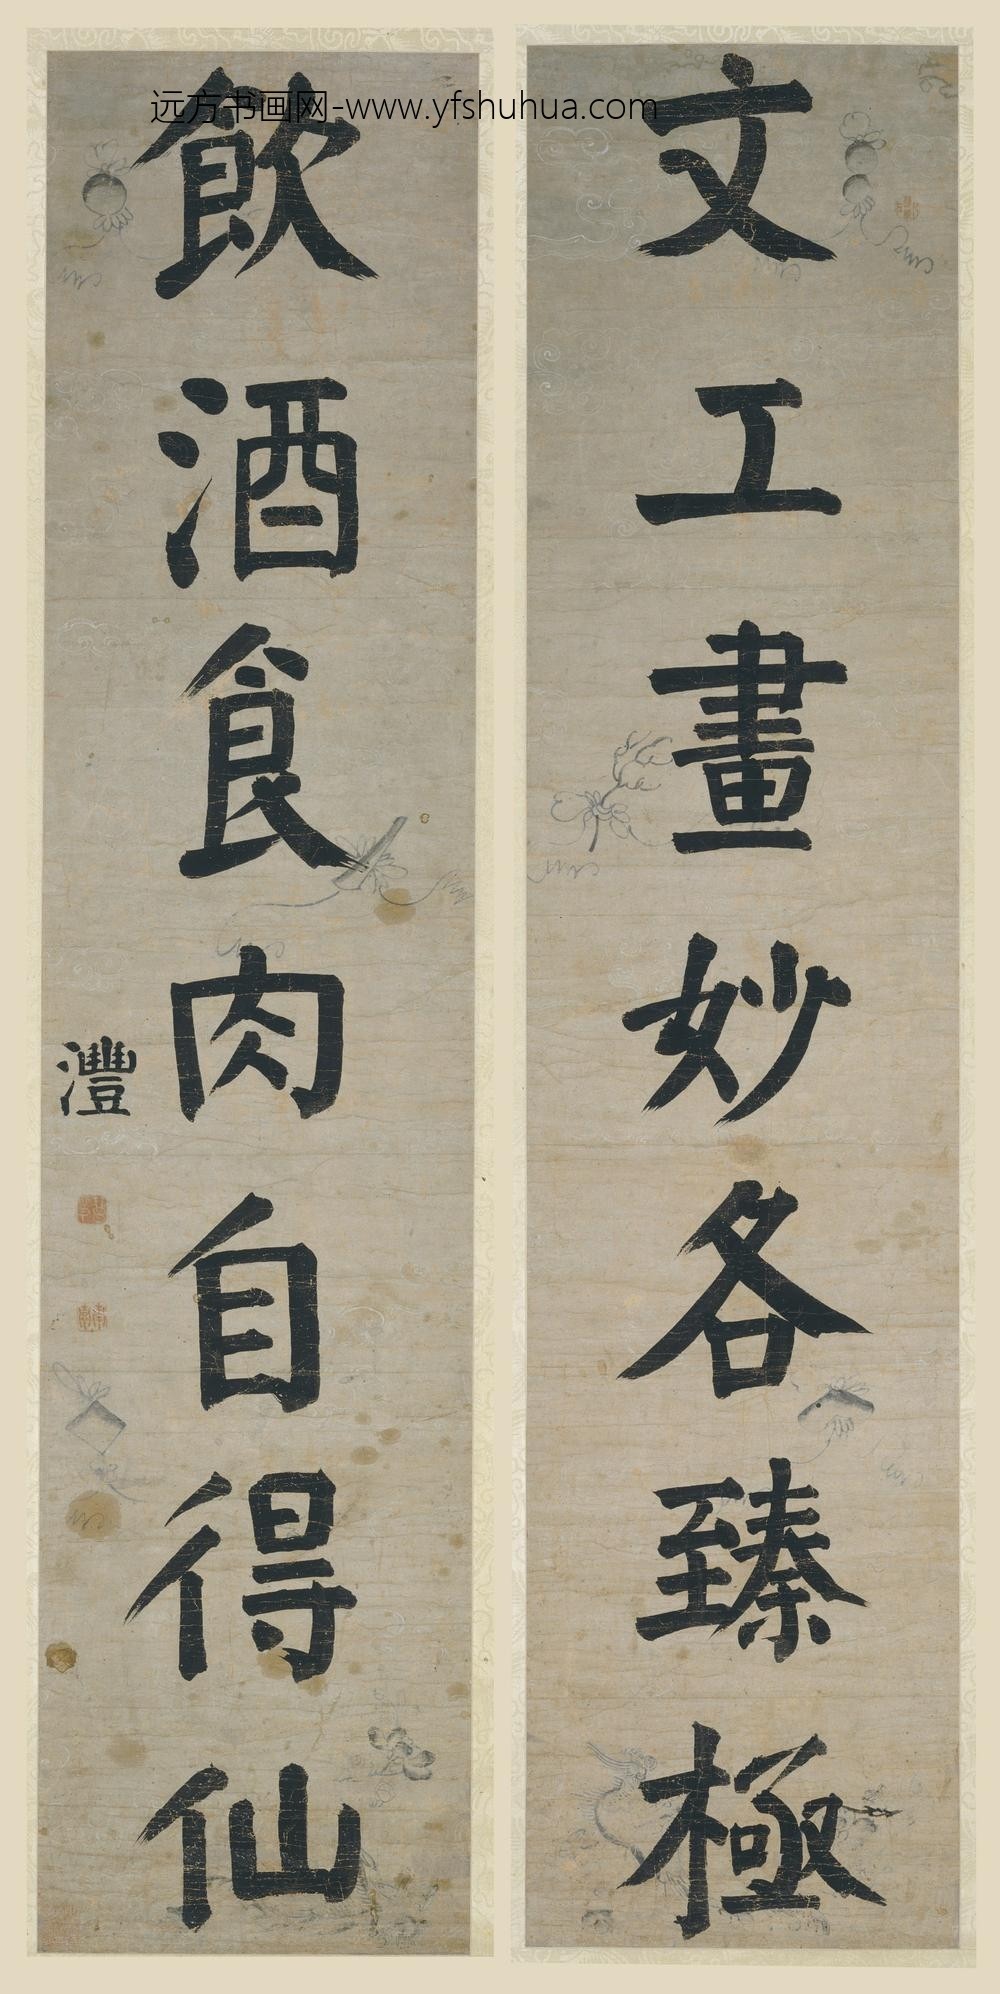 远方书画网-www.yfshuhua.com
文工畫妙各臻極
飲酒食肉自得仙
灃